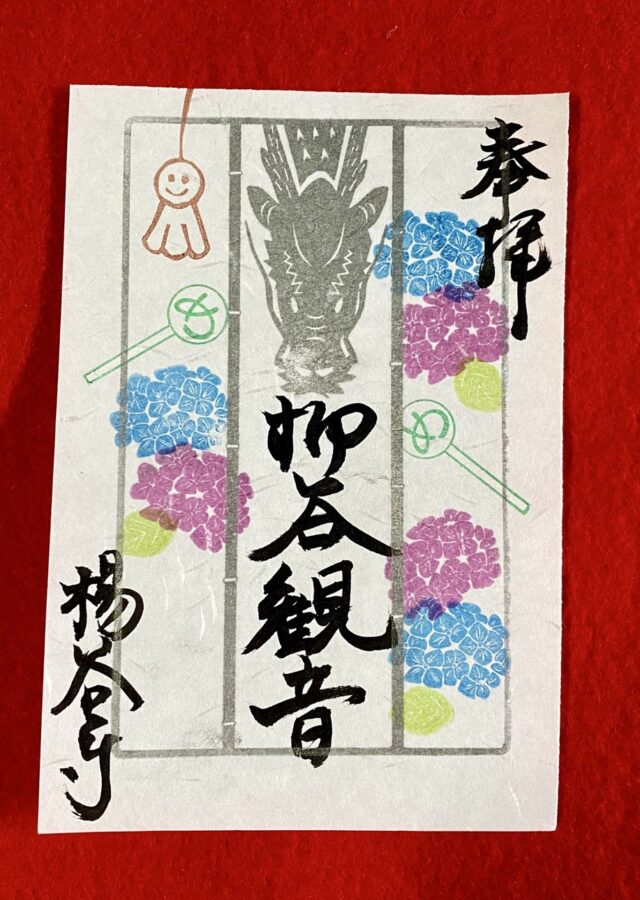 奉拝
柳谷観音
楊谷寺
め
め